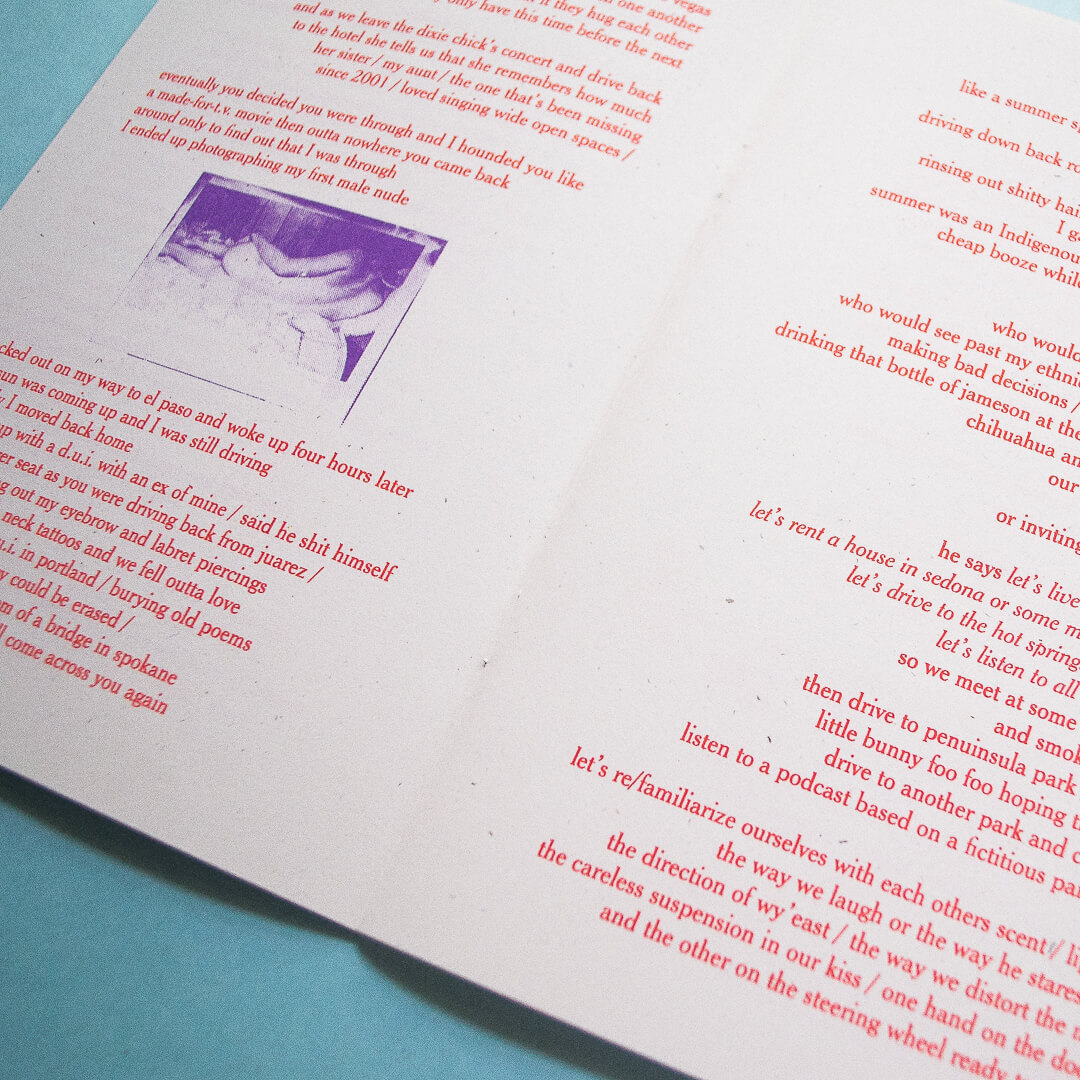 vegas
one another
if they hug each other
only have this time before the next
and as we leave the dixie chick's concert and drive back
to the hotel she tells us that she remembers how much
her sister / my aunt / the one that's been missing
since 2001 / loved singing wide open spaces /
eventually you decided you were through and I hounded you like
a made-for-t.v. movie then outta nowhere you came back
around only to find out that I was through
I ended up photographing my first male nude
cked out on my way to el paso and woke up four hours later
sun was coming up and I was still driving
I moved back home
up with a d.u.i. with an ex of mine / said he shit himself
er seat as you were driving back from juarez /
g out my eyebrow and labret piercings
neck tattoos and we fell outta love
u.i. in portland / burying old poems
y could be erased /
om of a bridge in spokane
ll come across you again
like a summer s
driving down back ro
rinsing out shitty hai
I ga
summer was an Indigenou
cheap booze while
who would
who would see past my ethni
making bad decisions /
drinking that bottle of jameson at the
chihuahua an
our
or inviting
he says let's live
let's rent a house in sedona or some m
let's drive to the hot spring
let's listen to all
so we meet at some
and smok
then drive to penuinsula park
little bunny foo foo hoping t
drive to another park and c
listen to a podcast based on a fictitious pa
let's re/familiarize ourselves with each others scent / li
the way we laugh or the way he stares
the direction of wy'east / the way we distort the
the careless suspension in our kiss / one hand on the doo
and the other on the steering wheel ready